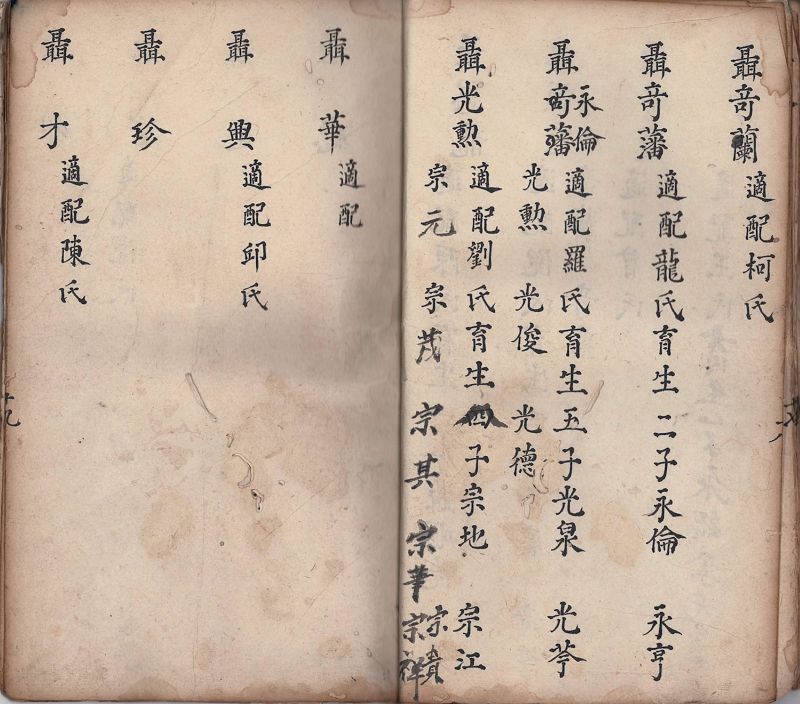 聶奇蘭 適配柯氏
聶奇藩 適配龍氏育生二子永倫 永亨
聶奇藩永倫 適配羅氏育生五子光泉 光苓
光勲 光俊 光德
聶光勲 適配劉氏育生四子宗地 宗江
宗元 宗茂 宗其 宗華 宗貴 宗祥
聶華 適配
聶興 適配邱氏
聶珍
聶才 適配陳氏